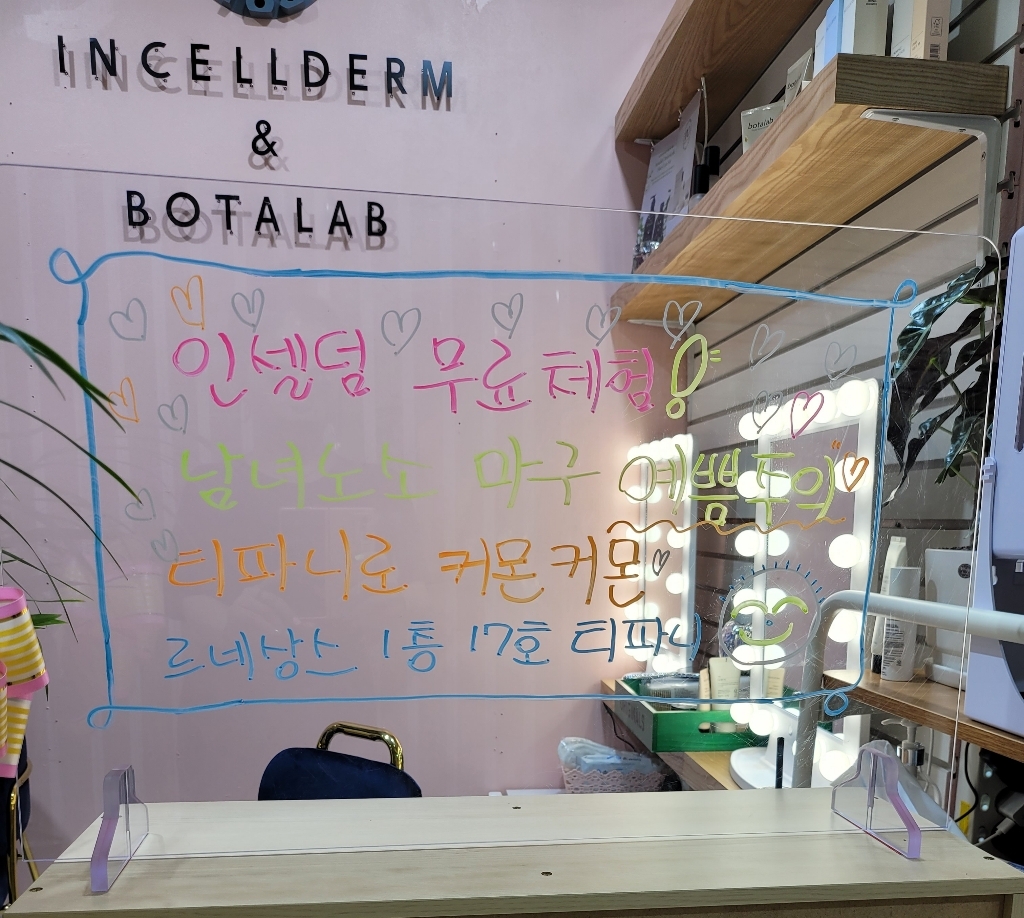 INCELLDERM
&
BOTALAB
botalab
인셀덤 무료체험!
남녀노소 마구 예쁨주의
티파니로 커몬커몬
르네상스 1층 17호 티파니